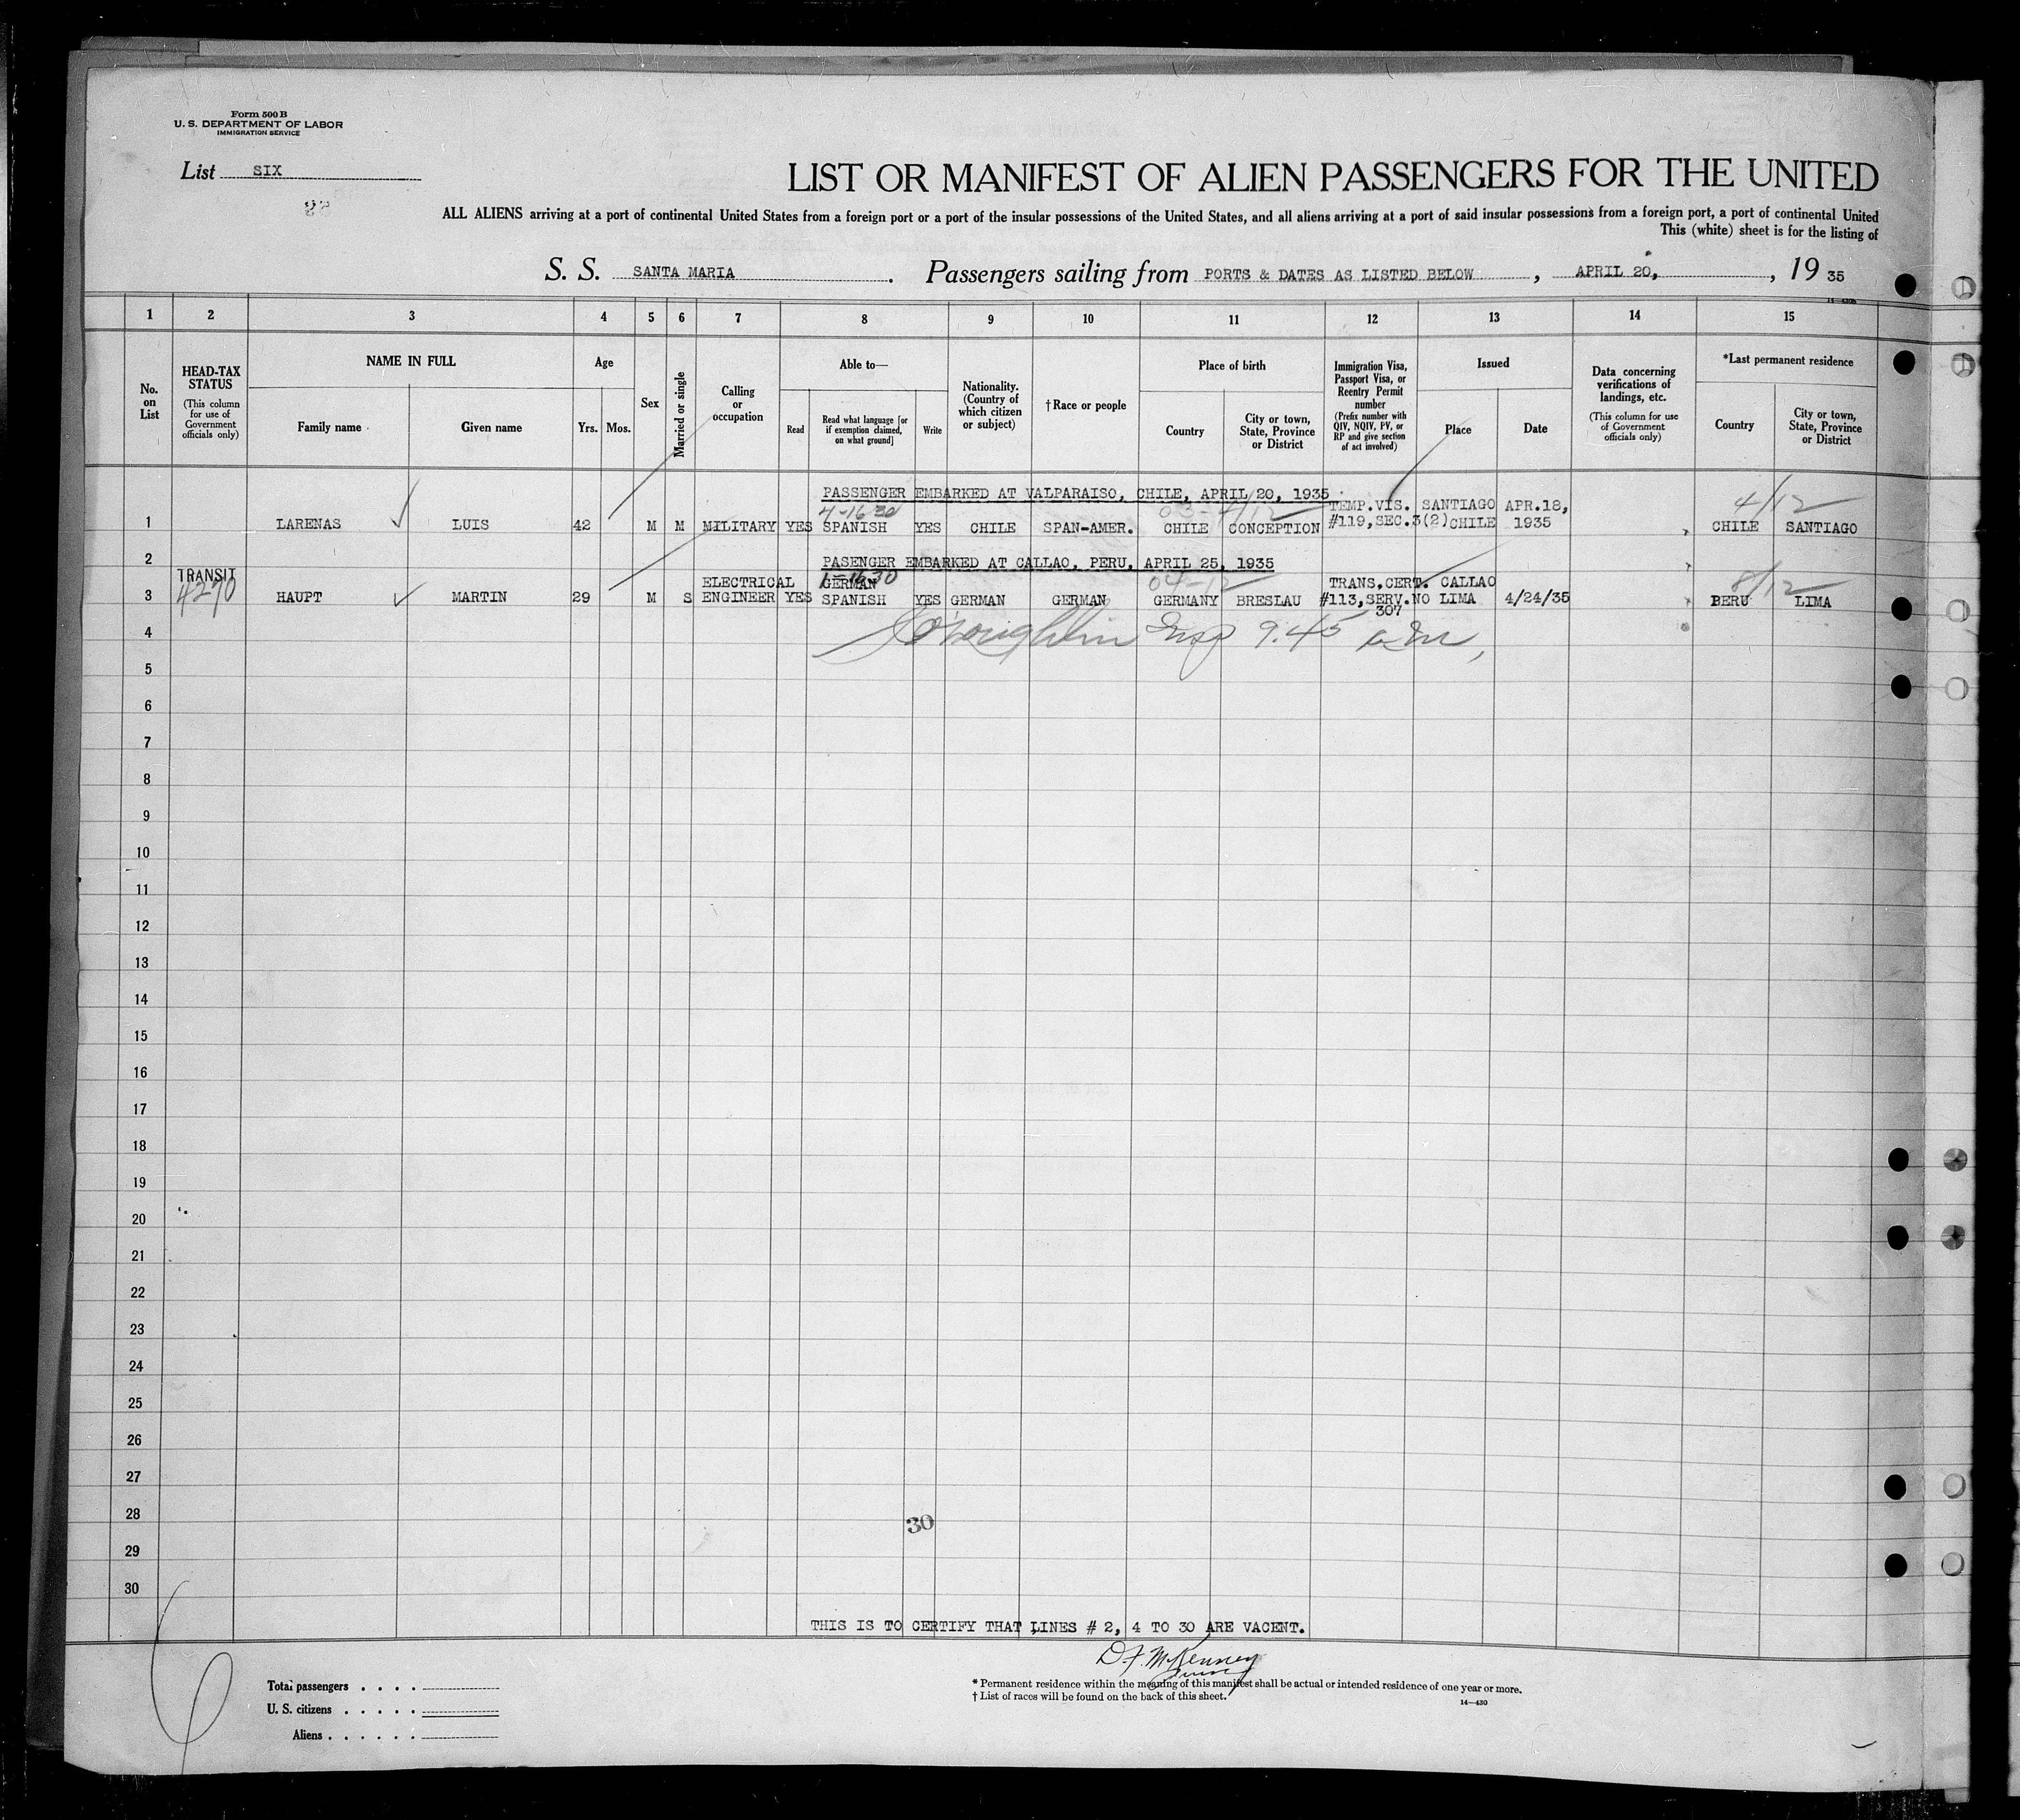 Form 500 B
U. S. DEPARTMENT OF LABOR
IMMIGRATION SERVICE
List SIX
LIST OR MANIFEST OF ALIEN PASSENGERS FOR THE UNITED
ALL ALIENS arriving at a port of continental United States from a foreign port or a port of the insular possessions of the United States, and all aliens arriving at a port of said insular possessions from a foreign port, a port of continental United
This (white) sheet is for the listing of
S. S. SANTA MARIA. Passengers sailing from PORTS & DATES AS LISTED BELOW, APRIL 20, , 19 35
1 2 3 4 5 6 7 8 9 10 11 12 13 14 15
No. on List
HEAD-TAX STATUS (This column for use of Government officials only)
NAME IN FULL
Family name
Given name
Age
Yrs. Mos.
Sex
Married or single
Calling or occupation
Able to—
Read
Read what language [or if exemption claimed, on what ground]
Write
Nationality. (Country of which citizen or subject)
†Race or people
Place of birth
Country
City or town, State, Province or District
Immigration Visa, Passport Visa, or Reentry Permit number (Prefix number with QIV, NQIV, PV, or RP and give section of act involved)
Issued
Place
Date
Data concerning verifications of landings, etc. (This column for use of Government officials only)
*Last permanent residence
Country
City or town, State, Province or District
PASSENGER EMBARKED AT VALPARAISO, CHILE, APRIL 20, 1935
4-1630 4/12
TEMP.VIS. SANTIAGO APR.18,
1 LARENAS LUIS 42 M M MILITARY YES SPANISH YES CHILE SPAN-AMER. CHILE CONCEPTION #119,SEC.3(2) CHILE 1935 CHILE SANTIAGO
2 PASENGER EMBARKED AT CALLAO, PERU, APRIL 25, 1935
TRANSIT ELECTRICAL GERMAN 04-12 TRANS.CERT. CALLAO 8/12
3 4270 HAUPT MARTIN 29 M S ENGINEER YES SPANISH YES GERMAN GERMAN GERMANY BRESLAU #113,SERV.NO LIMA 4/24/35 BERU LIMA
307
4 O'Loughlin Insp 9.45 am,
5
6
7
8
9
10
11
12
13
14
15
16
17
18
19
20
21
22
23
24
25
26
27
28
30
29
30
THIS IS TO CERTIFY THAT LINES # 2, 4 TO 30 ARE VACENT.
D. F. McKenney
Total passengers . . . .
U. S. citizens . . . . .
Aliens . . . . . .
* Permanent residence within the meaning of this manifest shall be actual or intended residence of one year or more.
† List of races will be found on the back of this sheet.
14—430